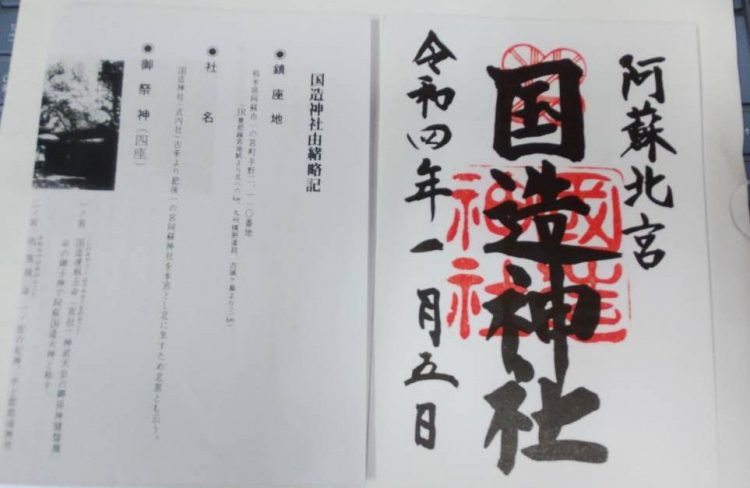 阿蘇北宮
国造神社
國造神社
令和四年一月五日
国造神社由緒略記
●鎮座地
熊本県阿蘇市一の宮町手野二一一〇番地
●社名
国造神社(式内社)古来より肥後一の宮阿蘇神社を本宮とし北に坐すため北宮ともいう。
●御祭神(四座)
一ノ宮 国造速瓶玉命